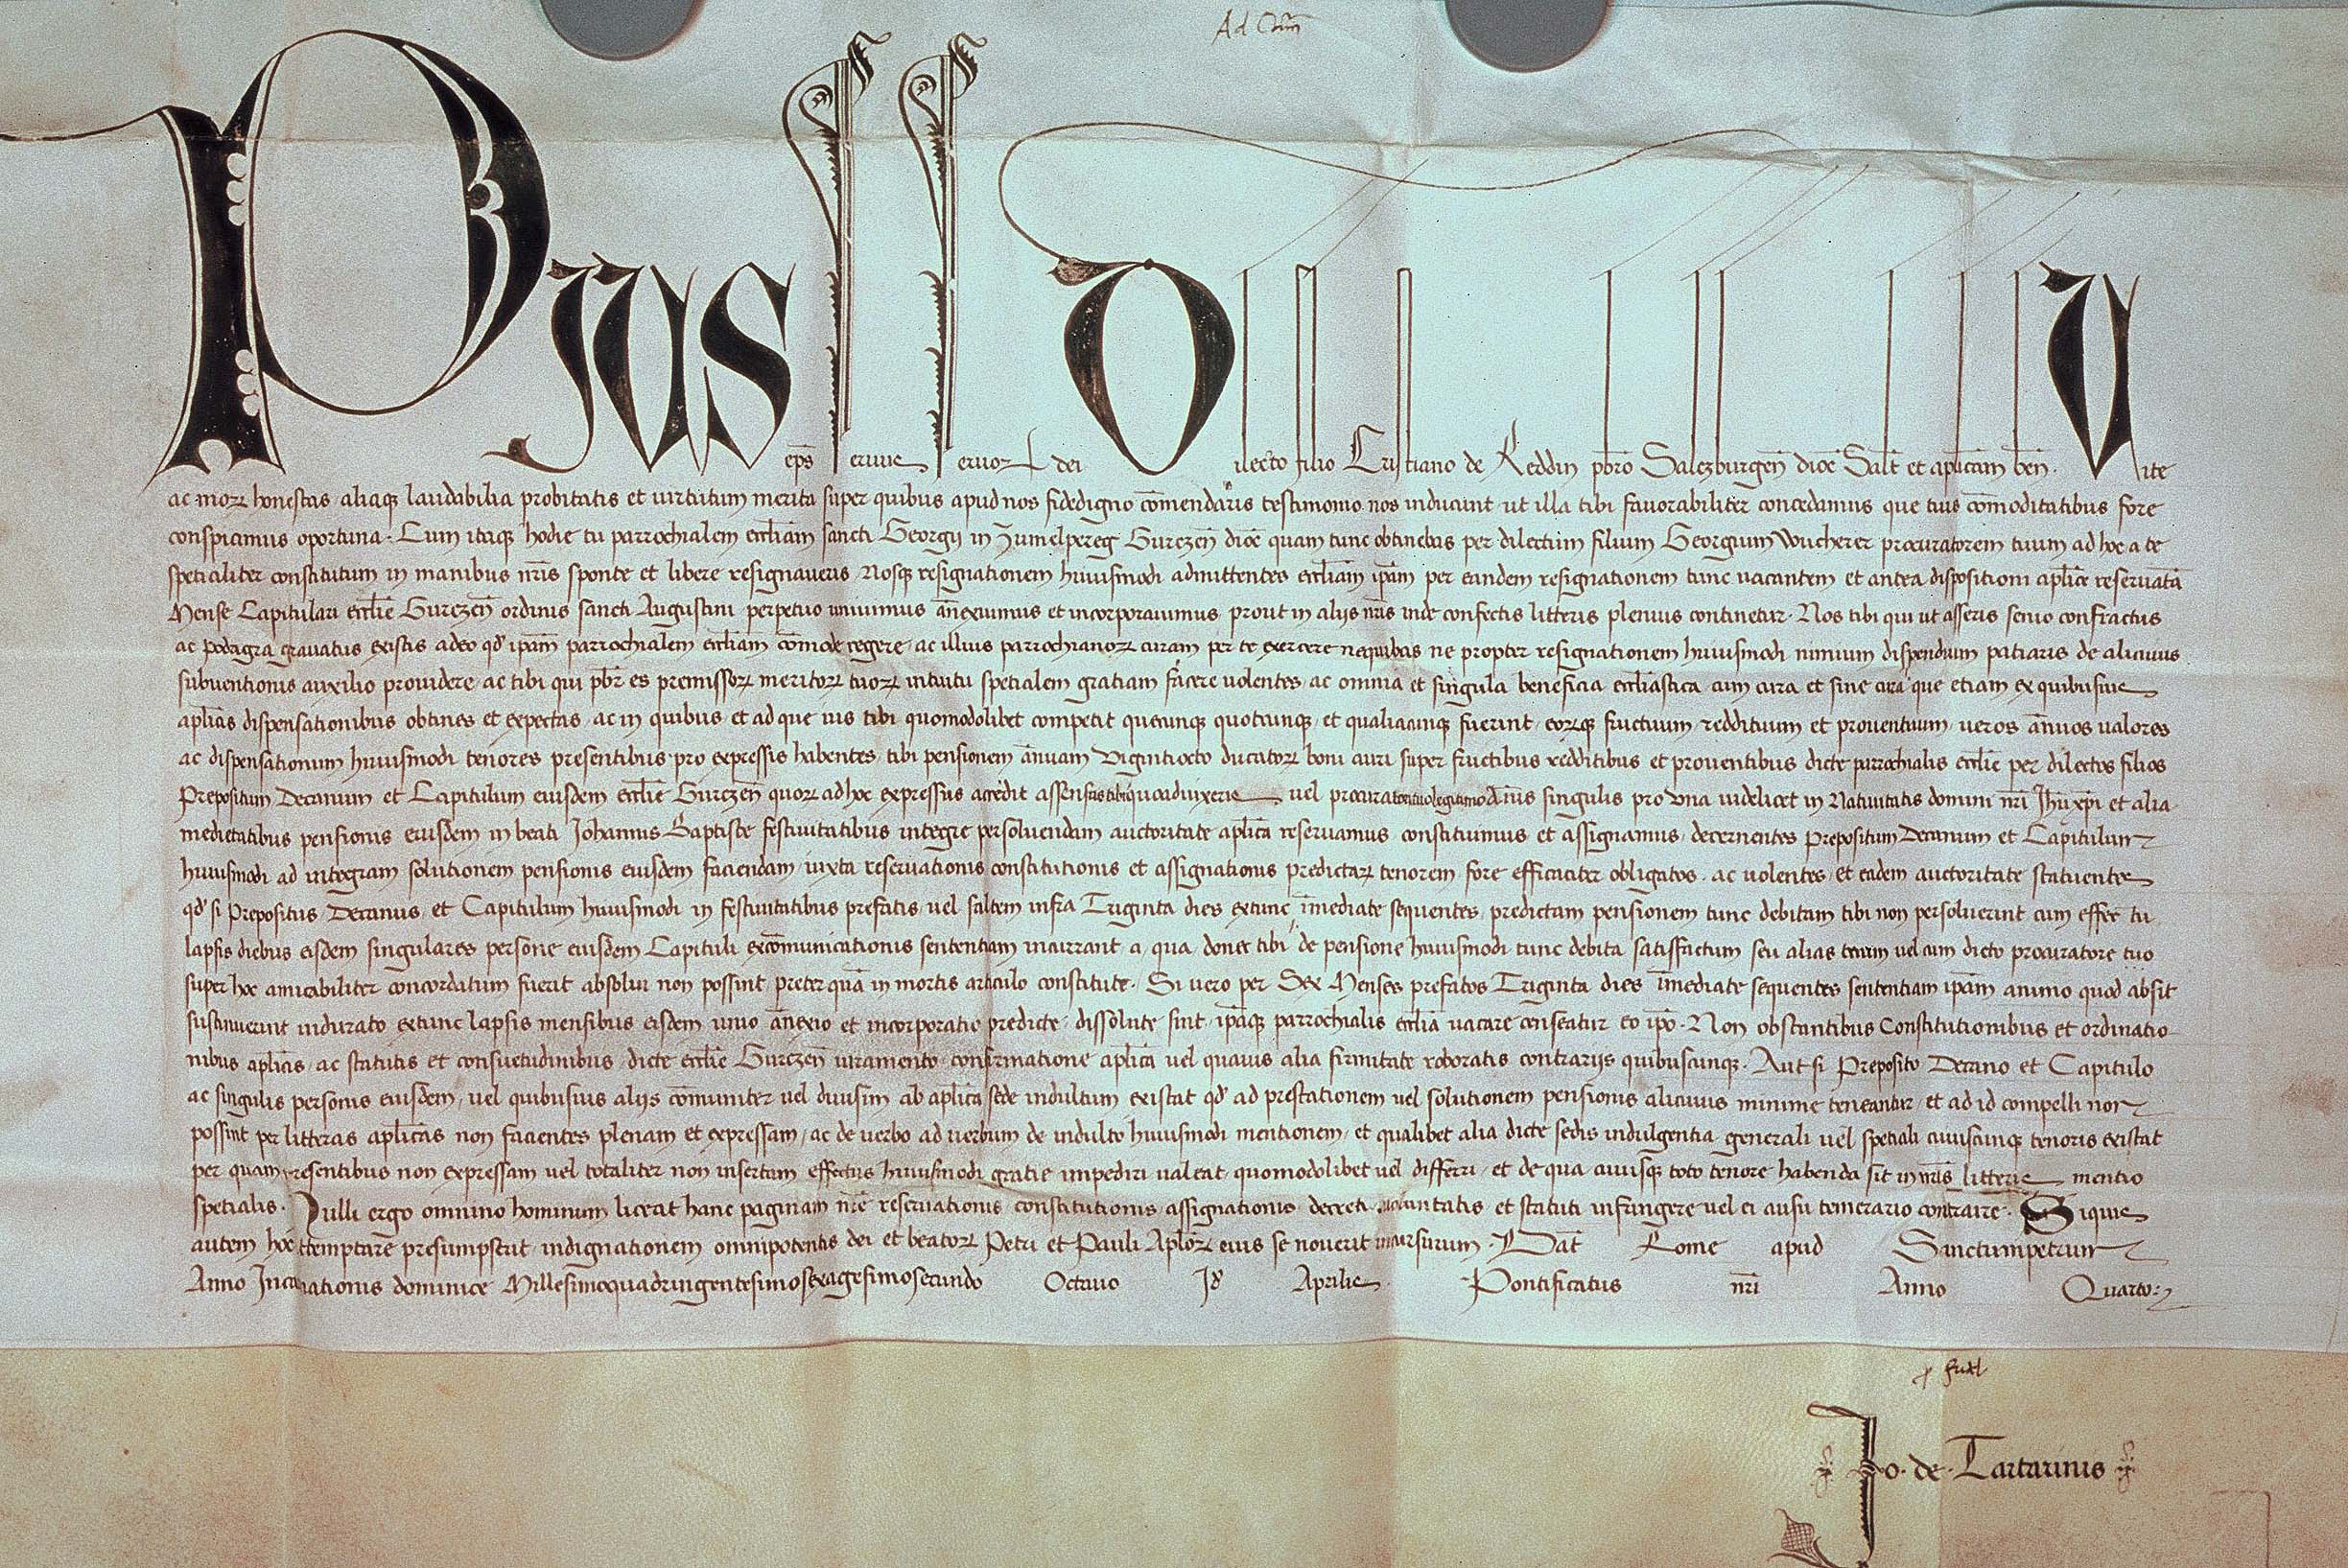 Ad
Pius eps servus servoꝝ dei Dilecto filio Cristiano de Reddin pbr̄o Salczburgen̄ dioc̄ Salt̄ et apl̄icam ben̄. Vite
ac moꝝ honestas aliaqꝫ laudabilia probitatis et virtutum merita super quibus apud nos fidedigno cōmendaris testimonio nos inducunt ut illa tibi favorabiliter concedamus que tuis cōmoditatibus fore
conspicimus oportuna. Cum itaqꝫ hodie tu parrochialem eccl̄iam sancti Georgii in Zumelpereg Gurczen̄ dioc̄ quam tunc obtinebas per dilectum filium Georgium Wucherer procuratorem tuum ad hoc a te
spetialiter constitutum in manibus nr̄is sponte et libere resignaveris Nosqꝫ resignationem huiusmodi admittentes eccl̄iam ip̄am per eandem resignationem tunc vacantem et antea dispositioni apl̄ice reservatā
Mense Capitulari eccl̄ie Gurczen̄ ordinis sancti Augustini perpetuo univimus ānexuimus et incorporavimus prout in alijs nr̄is inde confectis litteris plenius continetur. Nos tibi qui ut asseris senio confractus
ac podagra gravatus existis adeo qd̛ ip̄am parrochialem eccl̄iam cōmode regere ac illius parrochianoꝝ curam per te exercere nequibas ne propter resignationem huiusmodi nimium dispendium patiaris de alicuius
subventionis auxilio providere ac tibi qui pbr̄ es premissoꝝ meritoꝝ tuoꝝ intuitu spetialem gratiam facere volentes ac omnia et singula beneficia eccl̄iastica cum cura et sine cura que etiam ex quibusvis
apl̄icis dispensationibus obtines et expectas ac in quibus et ad que ius tibi quomodolibet competit quecunqꝫ quotcunqꝫ et qualiacunqꝫ fuerint eoꝝqꝫ fructuum reddituum et proventuum veros ānuos valores
ac dispensationum huiusmodi tenores presentibus pro expressis habentes tibi pensionem ānuam Vigintiocto ducatoꝝ boni auri super fructibus redditibus et proventibus dicte parrochialis eccl̄ie per dilectos filios
Prepositum Decanum et Capitulum eiusdem eccl̄ie Gurczen̄ quoꝝ ad hoc expressus accedit assensus tibi quoad vixeris vel procuratori tuo legitimo Ānis singulis pro una videlicet in Nativitatis domini nr̄i Jh̄u xp̄i et alia
medietatibus pensionis eiusdem in beati Johannis Baptiste festivitatibus integre persolvendam auctoritate apl̄ica reservamus constituimus et assignamus decernentes Prepositum Decanum et Capitulum
huiusmodi ad integram solutionem pensionis eiusdem faciendam iuxta reservationis constitutionis et assignationis predictaꝝ tenorem fore efficaciter obligatos. ac volentes et eadem auctoritate statuentes
qd̛ si Prepositus Decanus et Capitulum huiusmodi in festivitatibus prefatis vel saltem infra Triginta dies extunc īmediate sequentes predictam pensionem tunc debitam tibi non persolverint cum effectu
lapsis diebus eisdem singulares persone eiusdem Capituli excōmunicationis sententiam incurrant a qua donec tibi de pensione huiusmodi tunc debita satisfactum seu alias tecum vel cum dicto procuratore tuo
super hoc amicabiliter concordatum fuerit absolvi non possint preterquā in mortis articulo constitute. Si vero per Sex Menses prefatos Triginta dies īmediate sequentes sententiam ip̄am animo quod absit
sustinuerint indurato extunc lapsis mensibus eisdem unio ānexio et incorporatio predicte dissolute sint ip̄aqꝫ parrochialis eccl̄ia vacare censeatur eo ip̄o. Non obstantibus Constitutionibus et ordinatio
nibus apl̄icis ac statutis et consuetudinibus dicte eccl̄ie Gurczen̄ iuramento confirmatione apl̄ica vel quavis alia firmitate roboratis contrarijs quibuscunqꝫ. Aut si Preposito Decano et Capitulo
ac singulis personis eiusdem vel quibusvis alijs cōmuniter vel divisim ab apl̄ica sede indultum existat qd̛ ad prestationem vel solutionem pensionis alicuius minime teneantur et ad id compelli non
possint per litteras apl̄icas non facientes plenam et expressam ac de verbo ad verbum de indulto huiusmodi mentionem et qualibet alia dicte sedis indulgentia generali vel spetiali cuiuscunqꝫ tenoris existat
per quam presentibus non expressam vel totaliter non insertam effectus huiusmodi gratie impediri valeat quomodolibet vel differri et de qua cuiusqꝫ toto tenore habenda sit in nr̄is litteris mentio
spetialis. Nulli ergo omnino hominum liceat hanc paginam nr̄e reservationis constitutionis assignationis decreti voluntatis et statuti infringere vel ei ausu temerario contraire. Siquis
autem hoc attemptare presumpserit indignationem omnipotentis dei et beatoꝝ Petri et Pauli Apl̄oꝝ eius se noverit incursurum. Dat̄ Rome apud Sanctumpetrum
Anno Incarnationis dominice Millesimoquadringentesimosexagesimosecundo Octavo Id̛ Aprilis. Pontificatus nr̄i Anno Quarto
Jo. de. Tartarinis